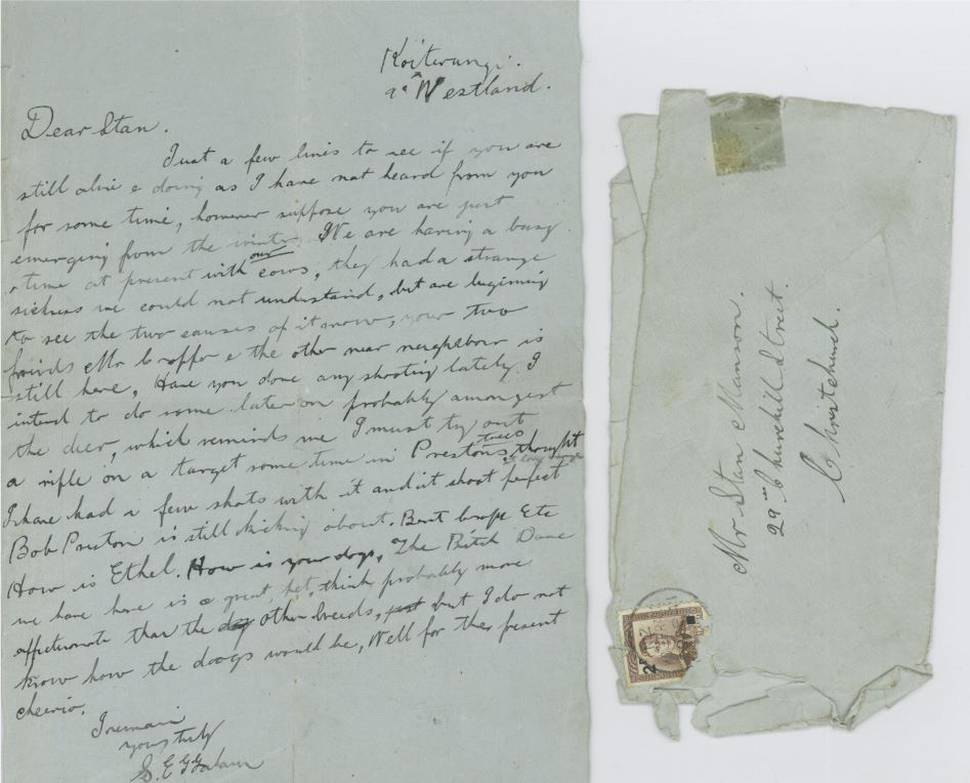 Koiterangi.
Westland.
Dear Stan.
Just a few lines to see if you are
still alive & doing as I have not heard from you
for some time, however suppose you are just
emerging from the winter. We are having a busy
time at present with our cows, they had a strange
sickness we could not understand, but are beginning
to see the two causes of it now, your two
friends Mr & the other near neighbour is
still here, Have you done any shooting lately I
intend to do some later on probably amongst
the deer, which reminds me I must try out
a rifle on a target some time in Prestons trees thought
I have had a few shots with it and it shoot perfect
Bob Preston is still kicking about.
How is Ethel. How is your dogs, The Bitch Dane
we have here is a great pet, think probably more
affectionate than the dog other breeds, but I do not
know how the doogs would be, Well for the present
cheerio.
I remain
yours truly
S. E. G Graham
Mr Stan Manson.
29 Churchill Street.
Christchurch.